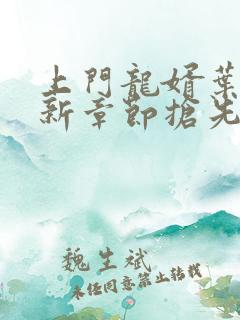 上門龍婿葉
新章節搶先
魏生斌
未經同意禁止轉載